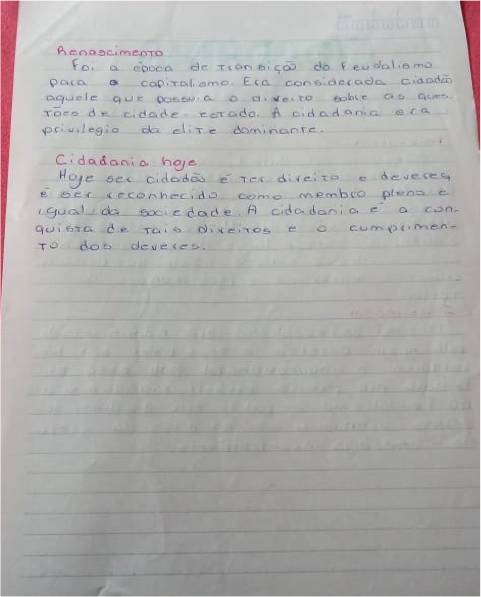 Renascimento
Foi a época de transição do Feudalismo
para o capitalismo. Era considerada cidadão
aquele que possuia o direito sobre as ques-
tões de cidade-estado. A cidadania era
privilegio da elite dominante.
Cidadania hoje
Hoje ser cidadão é ter direito e deveres,
é ser reconhecido como membro pleno e
igual da sociedade. A cidadania é a con-
quista de tais direitos e o cumprimen-
to dos deveres.